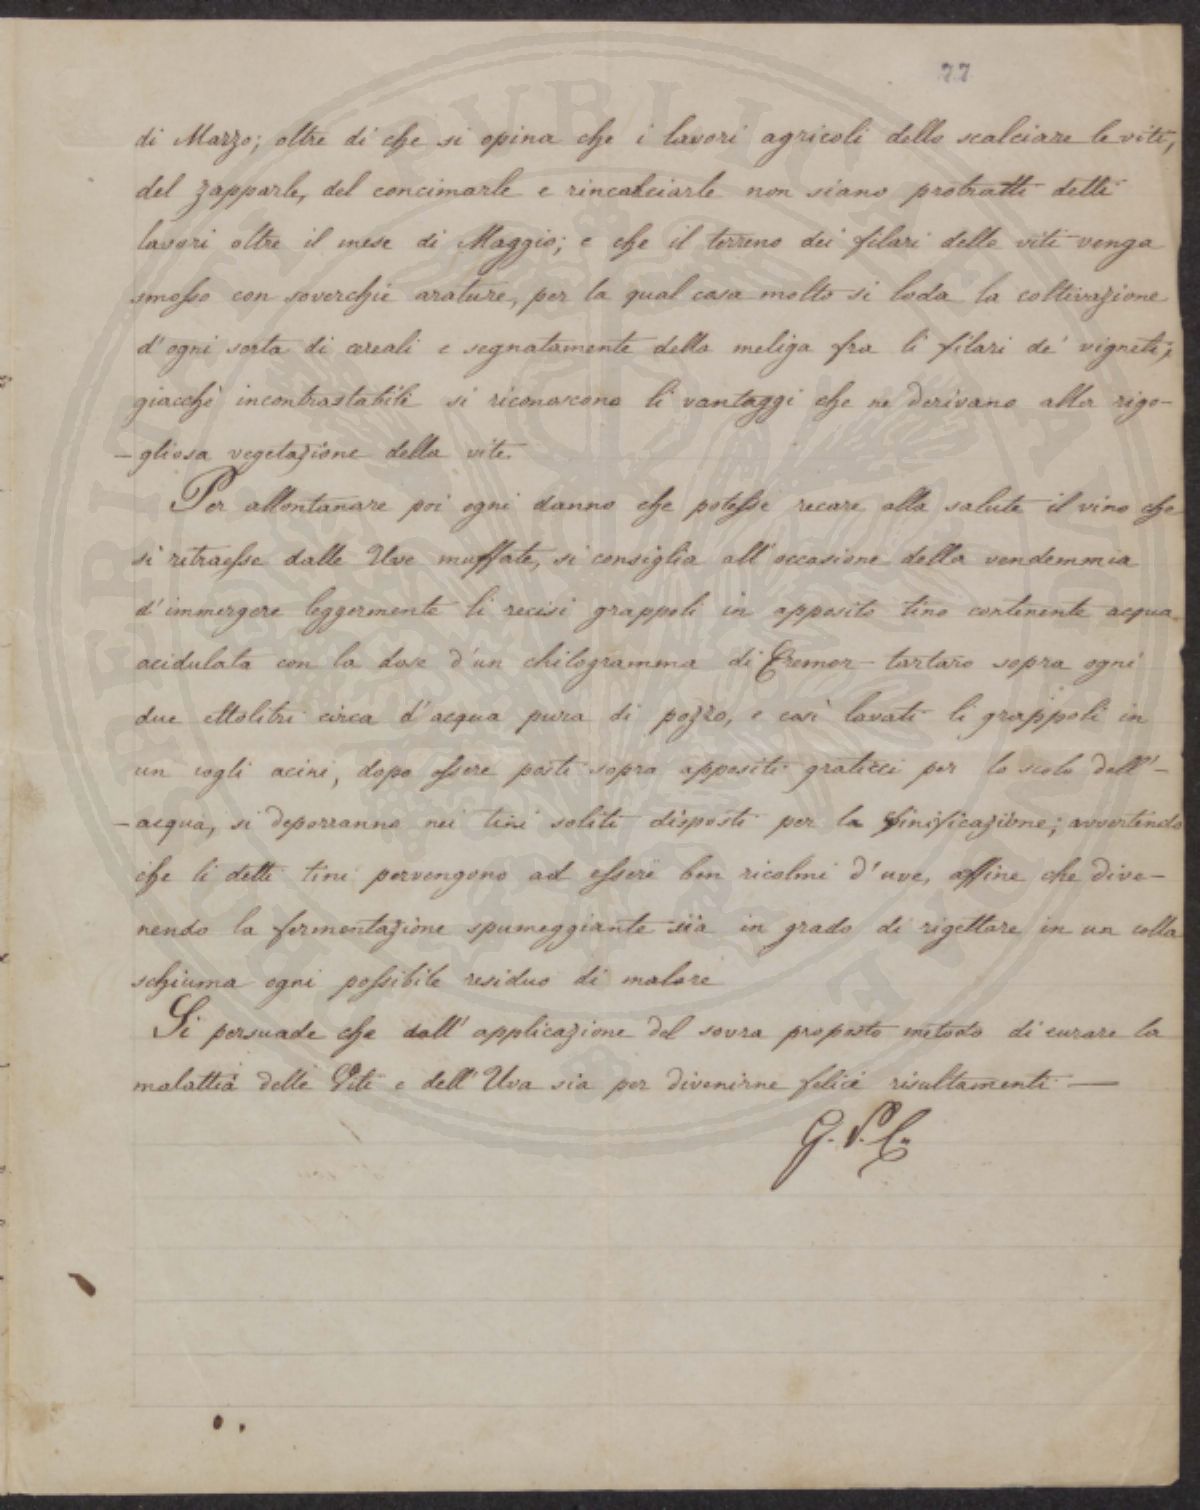 77
di Marzo; oltre di che si opina che i lavori agricoli dello scalciare le viti,
del zapparle, del concimarle e rincalciarle non siano protratti detti
lavori oltre il mese di Maggio; e che il terreno dei filari delle viti venga
smosso con soverchie arature, per la qual cosa molto si loda la coltivazione
d'ogni sorta di cereali e segnatamente della meliga fra li filari de' vigneti,
giacchè incontrastabili si riconoscono li vantaggi che ne derivano alla rigo-
-gliosa vegetazione della vite.
Per allontanare poi ogni danno che potesse recare alla salute il vino che
si ritraesse dalle Uve muffate, si consiglia all'occasione della vendemmia
d'immergere leggermente li recisi grappoli in apposito tino contenente acqua
acidulata con la dose d'un chilogramma di Cremor-tartaro sopra ogni
due ettolitri circa d'acqua pura di pozzo, e così lavati li grappoli in
un cogli acini, dopo essere posti sopra appositi graticci per lo scolo dell'-
-acqua, si deporranno nei tini soliti disposti per la vinificazione; avvertendo
che li detti tini pervengono ad essere ben ricolmi d'uve, affine che dive-
nendo la fermentazione spumeggiante sia in grado di rigettare in un colla
schiuma ogni possibile residuo di malore
Si persuade che dall'applicazione del sovra proposto metodo di curare la
malattia delle Viti e dell'Uva sia per divenirne felici risultamenti —